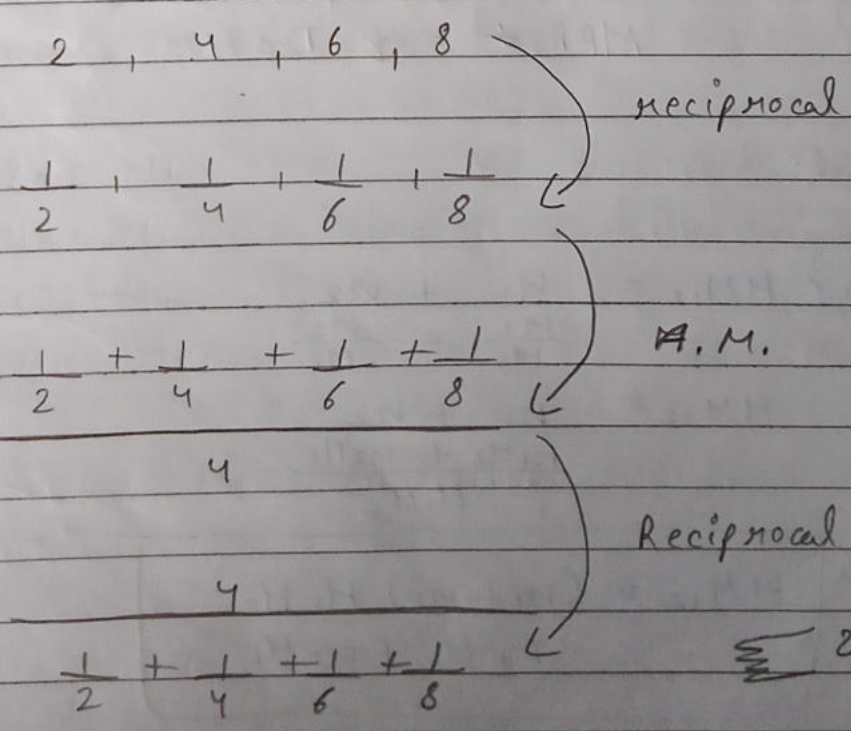 2 , 4 , 6 , 8
reciprocal
1/2 , 1/4 , 1/6 , 1/8
1/2 + 1/4 + 1/6 + 1/8
A.M.
4
Reciprocal
4
1/2 + 1/4 + 1/6 + 1/8